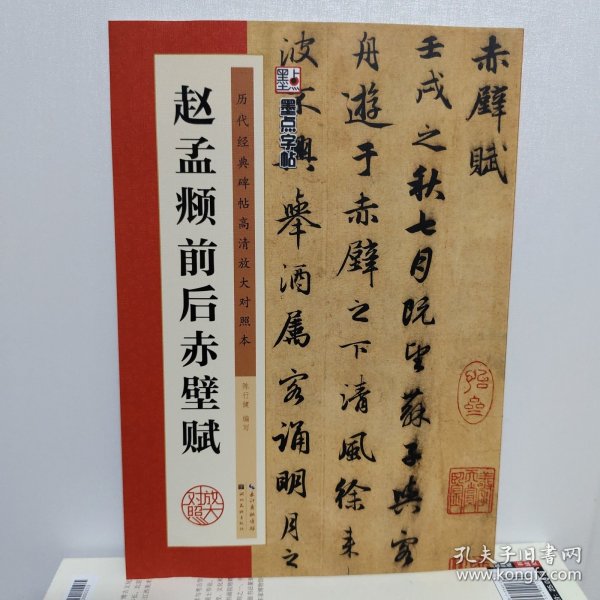 赤壁賦
壬戌之秋七月既望蘇子與客
舟遊于赤壁之下清風徐来
波不興舉酒屬客誦明月之
墨点
墨点字帖
历代经典碑帖高清放大对照本
陈行健 编写
赵孟𫖯前后赤壁赋
放大对照
长江出版传媒
湖北美术出版社
孔夫子旧书网
www.kongfz.com